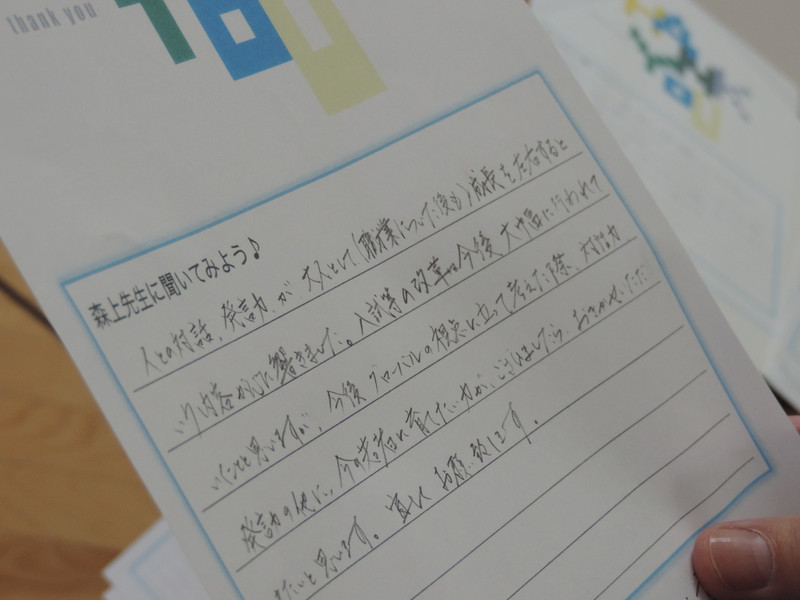 thank you
森上先生に聞いてみよう♪
人との対話、発言力が大人として(職業についた後も)成長を左右すると
いう内容が心に響きました。入試等の改革も今後大幅に行われて
いくことと思いますが、今後グローバルの視点に立って考えた際、対話力
発言力の他に、今の若者に育てたい力が、ございましたら、お聞かせいただ
きたいと思います。宜しくお願い致します。